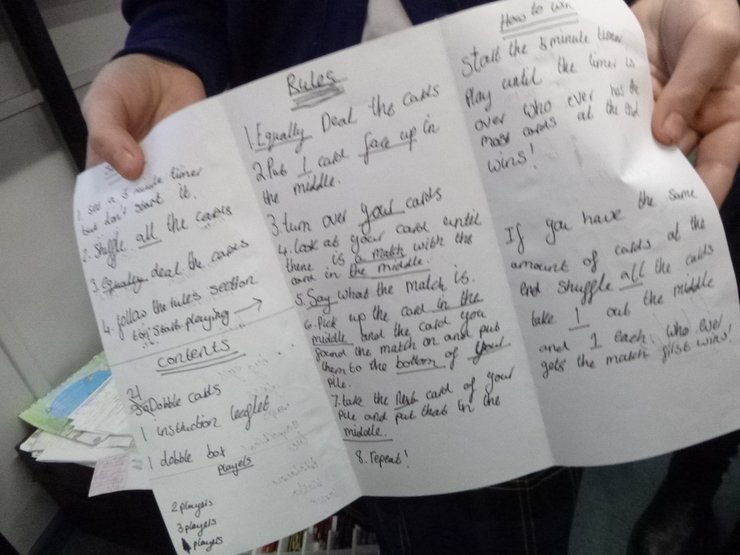 1. set a 5 minute timer
but don't start it.
2. Shuffle all the cards
3. Equally deal the cards
4. follow the rules section
to start playing →
contents
Dobble cards
1 instruction leaflet
1 dobble box
players
2 players
3 players
4 players
Rules
1. Equally Deal the cards
2. Put 1 card face up in
the middle.
3. turn over your cards
4. Look at your card until
there is a match with the
card in the middle.
5. Say what the match is.
6. Pick up the card in the
middle and the card you
found the match on and put
them to the bottom of your
pile.
7. take the next card of your
pile and put that in the
middle.
8. repeat!
How to win
Start the 5 minute timer
Play until the timer is
over who ever has the
most cards at the end
wins!
If you have the same
amount of cards at the
end shuffle all the cards
take 1 out the middle
and 1 each who ever
gets the match first wins!